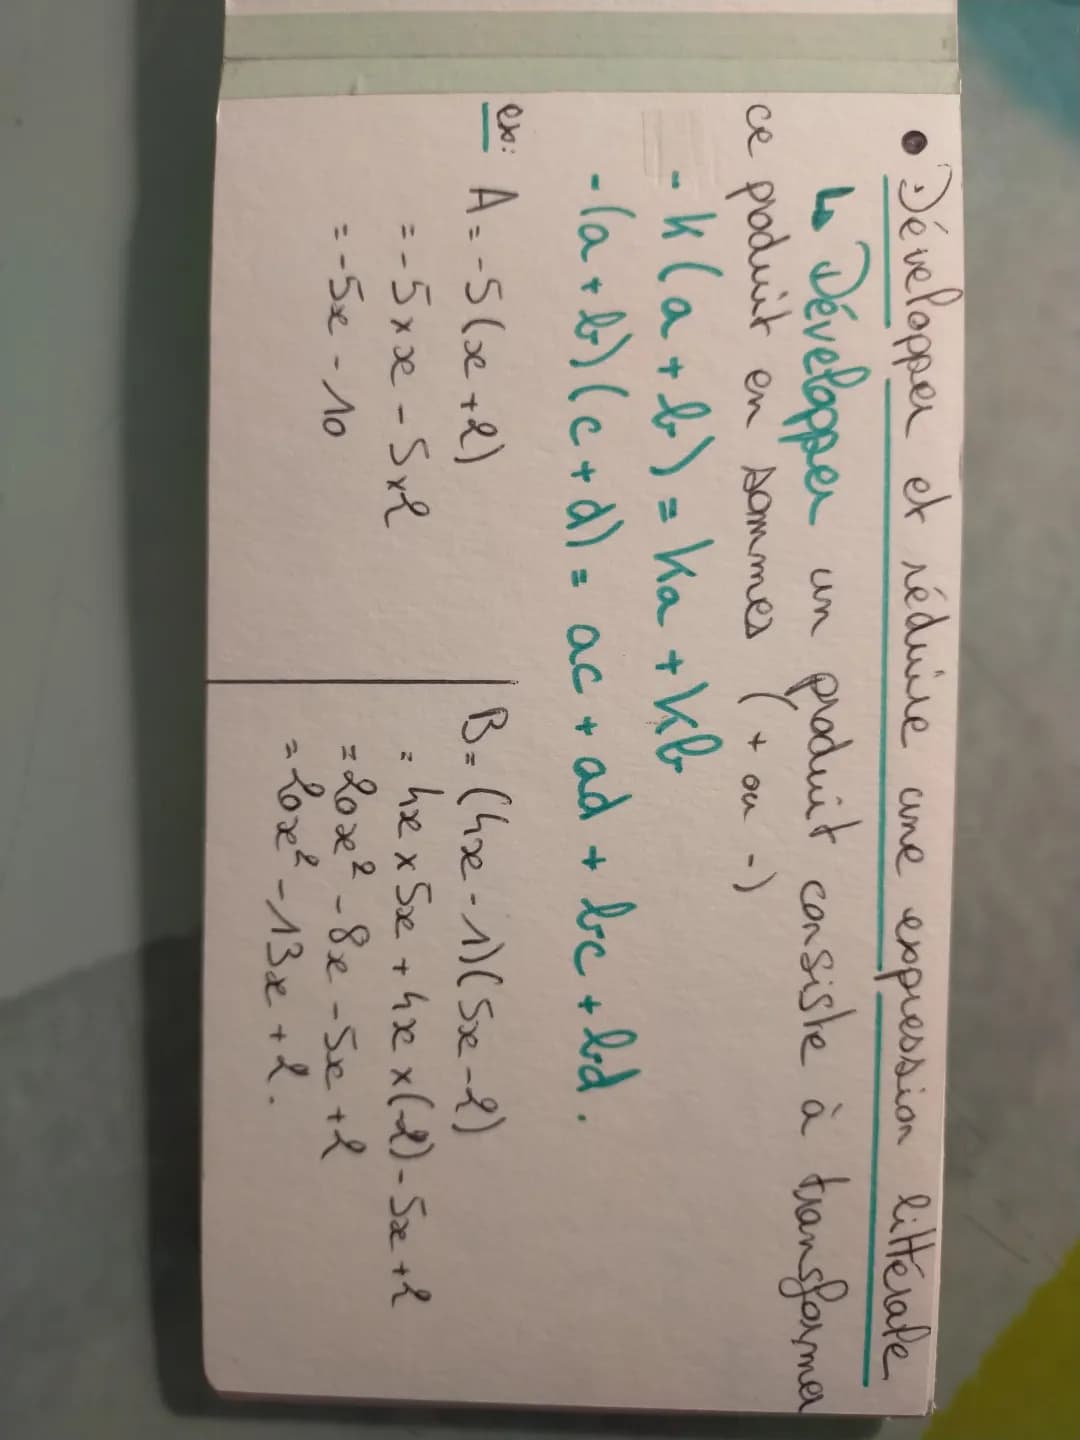 • Développer et réduire une expression littérale
↳ Développer un produit consiste à transformer
ce produit en sommes (+ ou -)
- k(a+b) = ka + kb
- (a+b)(c+d) = ac + ad + bc + bd.
ex: A = -5(x+2)
= -5×x - 5×2
= -5x - 10
B = (4x-1)(5x-2)
= 4x × 5x + 4x × (-2) - 5x + 2
= 20x² - 8x - 5x + 2
= 20x² - 13x + 2.